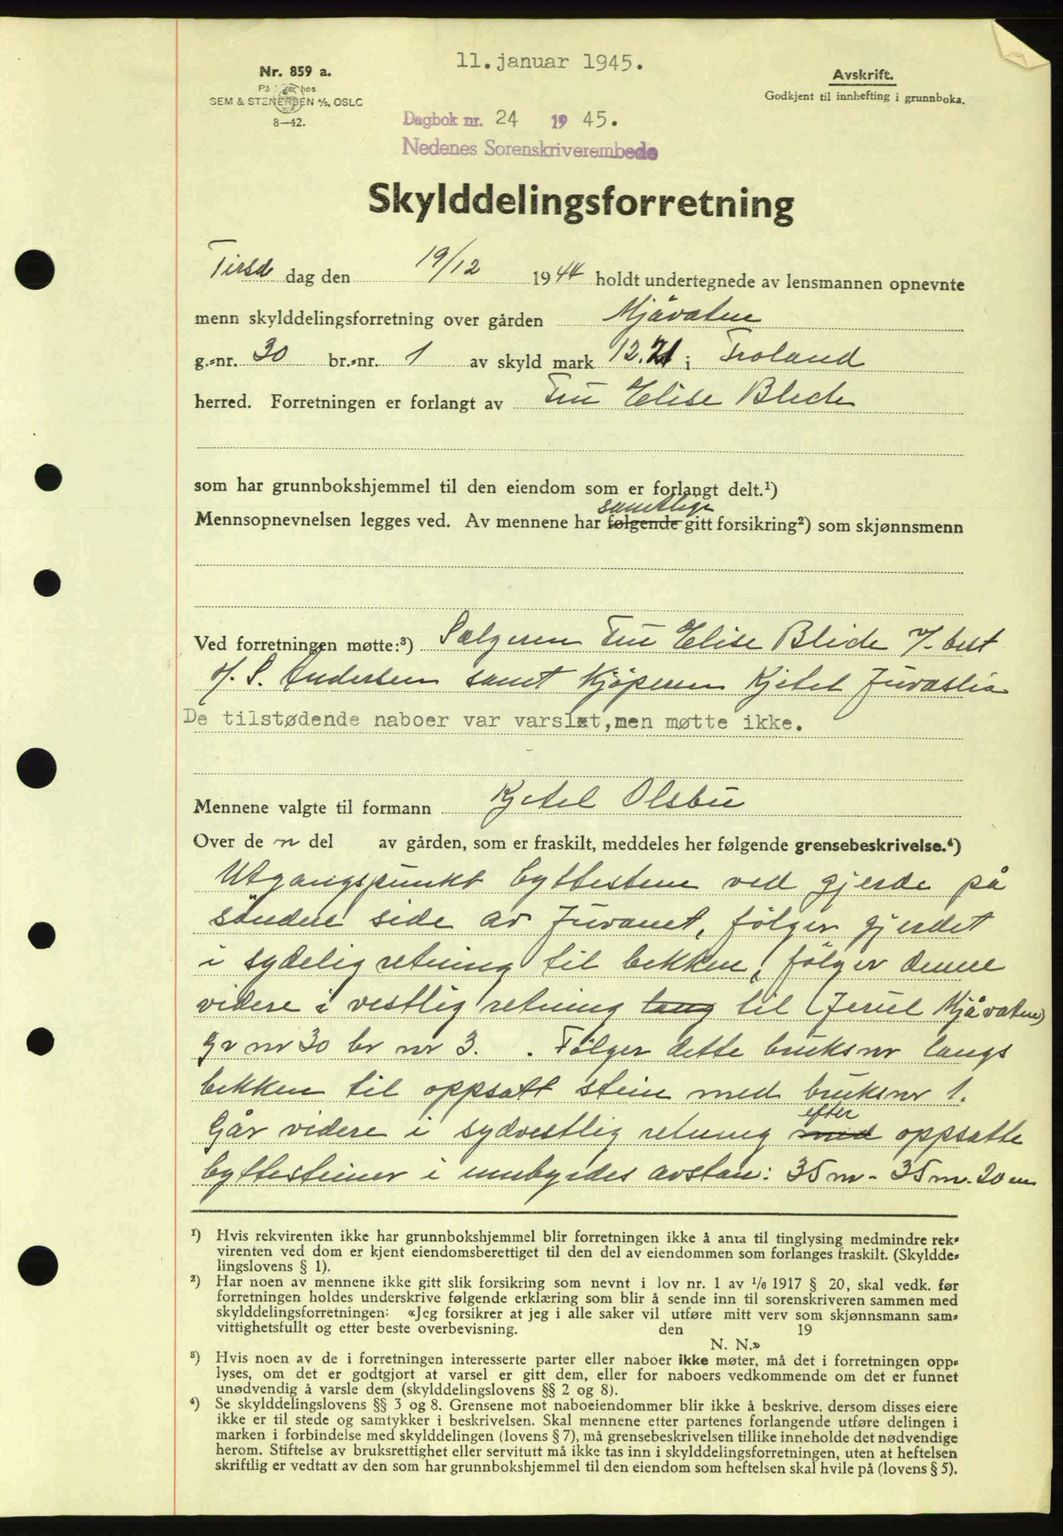 11. januar 1945.
Nr. 859 a.
SEM & STENERSEN A/S, OSLO
8-42.
Avskrift.
Godkjent til innhefting i grunnboka.
Dagbok nr. 24 1945.
Nedenes Sorenskriverembede
Skylddelingsforretning
Tirsdag den 19/12 1944 holdt undertegnede av lensmannen opnevnte
menn skylddelingsforretning over gården Mjåvatn
g.-nr. 30 br.-nr. 1 av skyld mark 12.21 i Froland
herred. Forretningen er forlangt av Fru Elise Blide
som har grunnbokshjemmel til den eiendom som er forlangt delt.¹)
samtlige
Mennsopnevnelsen legges ved. Av mennene har følgende gitt forsikring²) som skjønnsmenn
Ved forretningen møtte:³) Selgeren Fru Elise Blide v/ best
o/ S. Andersen samt kjøperen Kjetel Juvaslia
De tilstødende naboer var varslet, men møtte ikke.
Mennene valgte til formann Kjetel Olsbu
Over de n del av gården, som er fraskilt, meddeles her følgende grensebeskrivelse.⁴)
Utgangspunkt byttesten ved gjerde på
søndre side av Juvanet, følger gjerdet
i sydelig retning til bekken, følger denne
videre i vestlig retning lang til (Jerul Mjåvatn)
gr nr 30 br nr 3. Følger dette bruksnr langs
bekken til oppsatt stein med bruksnr 1.
efter
Går videre i sydvestlig retning med oppsatte
byttesteiner i innbyrdes avstan: 35 m - 35 m - 20 m
¹) Hvis rekvirenten ikke har grunnbokshjemmel blir forretningen ikke å anta til tinglysing medmindre rek-
virenten ved dom er kjent eiendomsberettiget til den del av eiendommen som forlanges fraskilt. (Skyldde-
lingslovens § 1).
²) Har noen av mennene ikke gitt slik forsikring som nevnt i lov nr. 1 av 1/6 1917 § 20, skal vedk. før
forretningen holdes underskrive følgende erklæring som blir å sende inn til sorenskriveren sammen med
skylddelingsforretningen: «Jeg forsikrer at jeg i alle saker vil utføre mitt verv som skjønnsmann sam-
vittighetsfullt og etter beste overbevisning. den 19
N. N.»
³) Hvis noen av de i forretningen interesserte parter eller naboer ikke møter, må det i forretningen opp-
lyses, om det er godtgjort at varsel er gitt dem, eller for naboers vedkommende om det er funnet
unødvendig å varsle dem (skylddelingslovens §§ 2 og 8).
⁴) Se skylddelingslovens §§ 3 og 8. Grensene mot naboeiendommer blir ikke å beskrive, dersom disses eiere
ikke er til stede og samtykker i beskrivelsen. Skal mennene etter partenes forlangende utføre delingen i
marken i forbindelse med skylddelingen (lovens § 7), må grensebeskrivelsen tillike inneholde det nødvendige
herom. Stiftelse av bruksrettighet eller servitutt må ikke tas inn i skylddelingsforretningen, uten at heftelsen
skriftlig er vedtatt av den som har grunnbokshjemmel til den eiendom som heftelsen skal hvile på (lovens § 5).